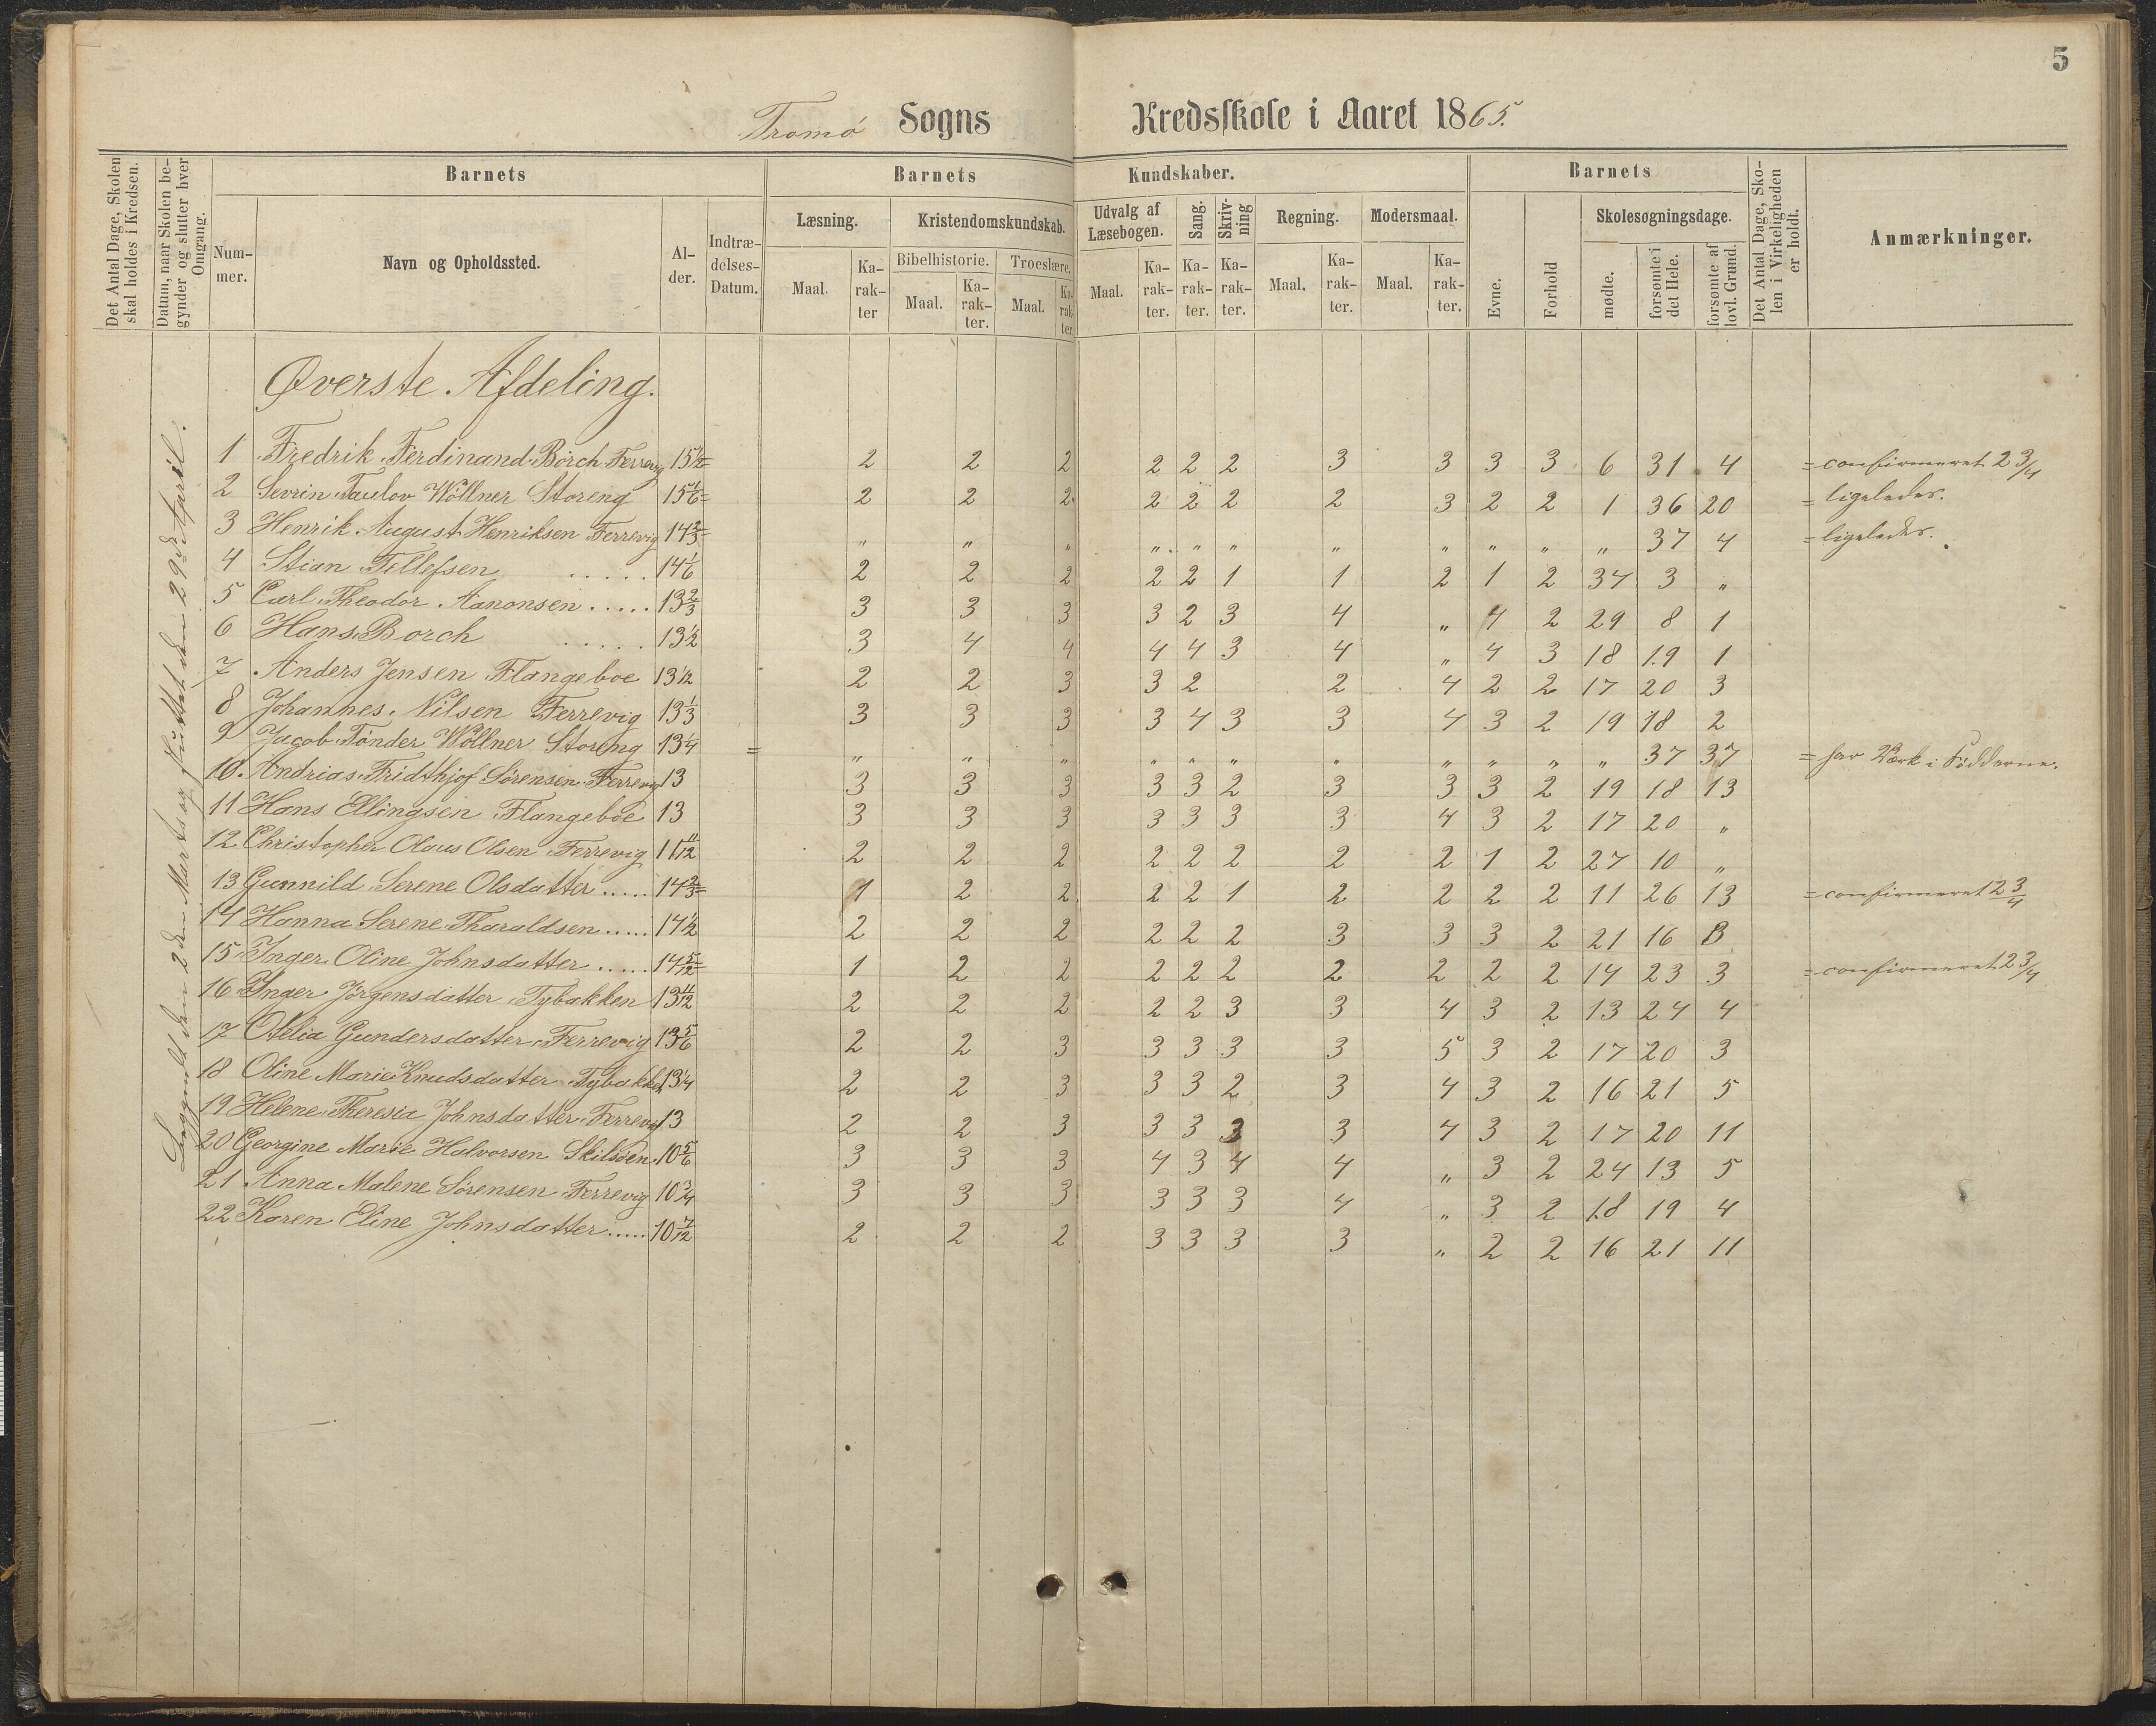 5
Tromø Sogns Kredsskole i Aaret 1865.
Det Antal Dage, Skolen skal holdes i Kredsen.
Datum, naar Skolen begynder og slutter hver Omgang.
Barnets
Barnets Kundskaber.
Barnets
Det Antal Dage, Skolen i Virkeligheden er holdt.
Anmærkninger.
Nummer.
Navn og Opholdssted.
Alder.
Indtrædelses-Datum.
Læsning.
Kristendomskundskab.
Udvalg af Læsebogen.
Sang.
Skrivning
Regning.
Modersmaal.
Evne.
Forhold
Skolesøgningsdage.
Bibelhistorie.
Troeslære.
Maal. Karakter Maal. Karakter. Maal. Karakter. Maal. Karakter. Karakter. Karakter. Maal. Karakter. Maal. Karakter.
mødte. forsømte i det Hele. forsømte af lovl. Grund.
Øverste Afdeling.
den 2den Marts og sluttet den 29de April.
1 Fredrik Ferdinand Børch Ferrevig 15 1/2 = 2 2 2 2 2 2 3 3 3 3 6 31 4 = confirmeret 23/4
2 Sevrin Taulov Wöllner Storeng 15 1/6 = 2 2 2 2 2 2 2 3 2 2 1 36 20 = ligeledes.
3 Henrik August Henriksen Ferrevig 14 2/3 = " " " " " " " " " " " 37 4 = ligeledes.
4 Stian Tellefsen ..... 14 1/6 2 2 2 2 2 1 1 2 1 2 34 3 "
5 Carl Theodor Aanonsen ..... 13 2/3 3 3 3 3 2 3 4 " 4 2 29 8 1
6 Hans Borch ..... 13 1/2 3 4 4 4 4 3 4 " 4 3 18 19 1
7 Anders Jensen Flangeboe 13 1/2 2 2 3 3 2 2 4 2 2 17 20 3
8 Johannes Nilsen Ferrevig 13 1/3 3 3 3 3 4 3 3 4 3 2 19 18 2
9 Jacob Tønder Wöllner Storeng 13 1/4 = " " " " " " " " " " " 37 37 = har Værk i Fødderne.
10. Andrias Fridthjof Sørensen Ferrevig 13 3 3 3 3 3 2 3 3 3 2 19 18 13
11 Hans Ellingsen Flangeboe 13 3 3 3 3 3 3 3 4 3 2 17 20 "
12 Christopher Olaus Olsen Ferrevig 11 11/12 2 2 2 2 2 2 2 2 1 2 27 10 "
13 Gunnild Serene Olsdatter ..... 14 2/3 = 1 2 2 2 2 1 2 2 2 2 11 26 13 = confirmeret 23/4
14 Hanna Serene Tharaldsen ..... 14 1/2 2 2 2 2 2 2 3 3 3 2 21 16
15 Inger Oline Johnsdatter ..... 14 5/12 = 1 2 2 2 2 2 2 2 2 2 14 23 3 = confirmeret 23/4
16 Inger Jörgensdatter Tybakken 13 11/12 2 2 2 2 2 3 3 4 3 2 13 24 4
17 Otelia Gundersdatter Ferrevig 13 5/6 2 2 3 3 3 3 3 5 3 2 17 20 3
18 Oline Marie Knudsdatter Tybakken 13 1/4 2 2 3 3 3 2 3 4 3 2 16 21 5
19 Helene Theresia Johnsdatter Ferrevig 13 2 2 3 3 3 3 3 4 3 2 17 20 11
20 Georgine Marie Halvorsen Skilsöen 10 5/6 3 3 3 4 3 4 4 " 3 2 24 13 5
21 Anna Malene Sörensen Ferrevig 10 3/4 3 3 3 3 3 3 4 " 3 2 18 19 4
22 Karen Eline Johnsdatter ..... 10 7/12 2 2 2 3 3 3 3 " 2 2 16 21 11